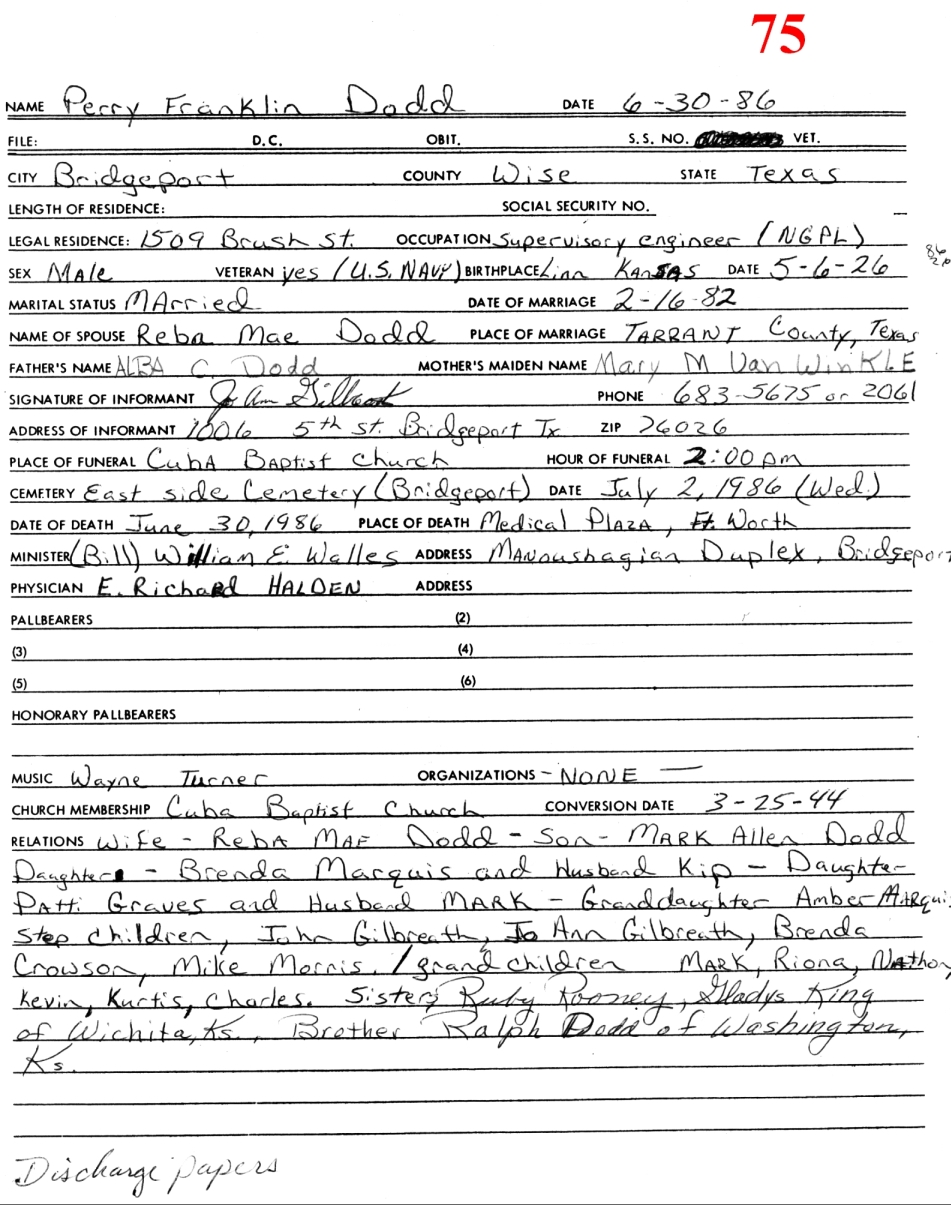 75
NAME Perry Franklin Dodd DATE 6-30-86
FILE: D.C. OBIT. S.S. NO. VET.
CITY Bridgeport COUNTY Wise STATE Texas
LENGTH OF RESIDENCE: SOCIAL SECURITY NO.
LEGAL RESIDENCE: 1509 Brush St. OCCUPATION Supervisory engineer (NGPL)
SEX Male VETERAN yes (U.S. NAVY) BIRTHPLACE Linn KANSAS DATE 5-6-26
MARITAL STATUS MArried DATE OF MARRIAGE 2-16-82
NAME OF SPOUSE Reba Mae Dodd PLACE OF MARRIAGE TARRANT County, Texas
FATHER'S NAME ALBA C. Dodd MOTHER'S MAIDEN NAME Mary M Van WinKLE
SIGNATURE OF INFORMANT Jo Ann Gilbreath PHONE 683-5675 or 2061
ADDRESS OF INFORMANT 1006 5th St. Bridgeport Tx ZIP 76026
PLACE OF FUNERAL CubA Baptist Church HOUR OF FUNERAL 2:00 pm
CEMETERY East side Cemetery (Bridgeport) DATE July 2, 1986 (Wed.)
DATE OF DEATH June 30, 1986 PLACE OF DEATH Medical PlAZA, Ft. Worth
MINISTER (Bill) William E. Walles ADDRESS MANoushagian Duplex, Bridgeport
PHYSICIAN E. Richard HALDEN ADDRESS
PALLBEARERS (2)
(3) (4)
(5) (6)
HONORARY PALLBEARERS
MUSIC Wayne Turner ORGANIZATIONS - NONE —
CHURCH MEMBERSHIP Cuba Baptist Church CONVERSION DATE 3-25-44
RELATIONS Wife - RebA MAE Dodd - Son - MARK Allen Dodd
Daughter - Brenda Marquis and Husband Kip - Daughter
PATTi Graves and Husband MARK - Granddaughter Amber MArquis
Step children, John Gilbreath, Jo Ann Gilbreath, Brenda
Crowson, Mike Morris. / grand children MARK, Riona, Nathon,
Kevin, Kurtis, Charles. Sisters Ruby Rooney, Gladys King
of Wichita, Ks., Brother Ralph Dodd of Washington,
Ks.
Discharge papers